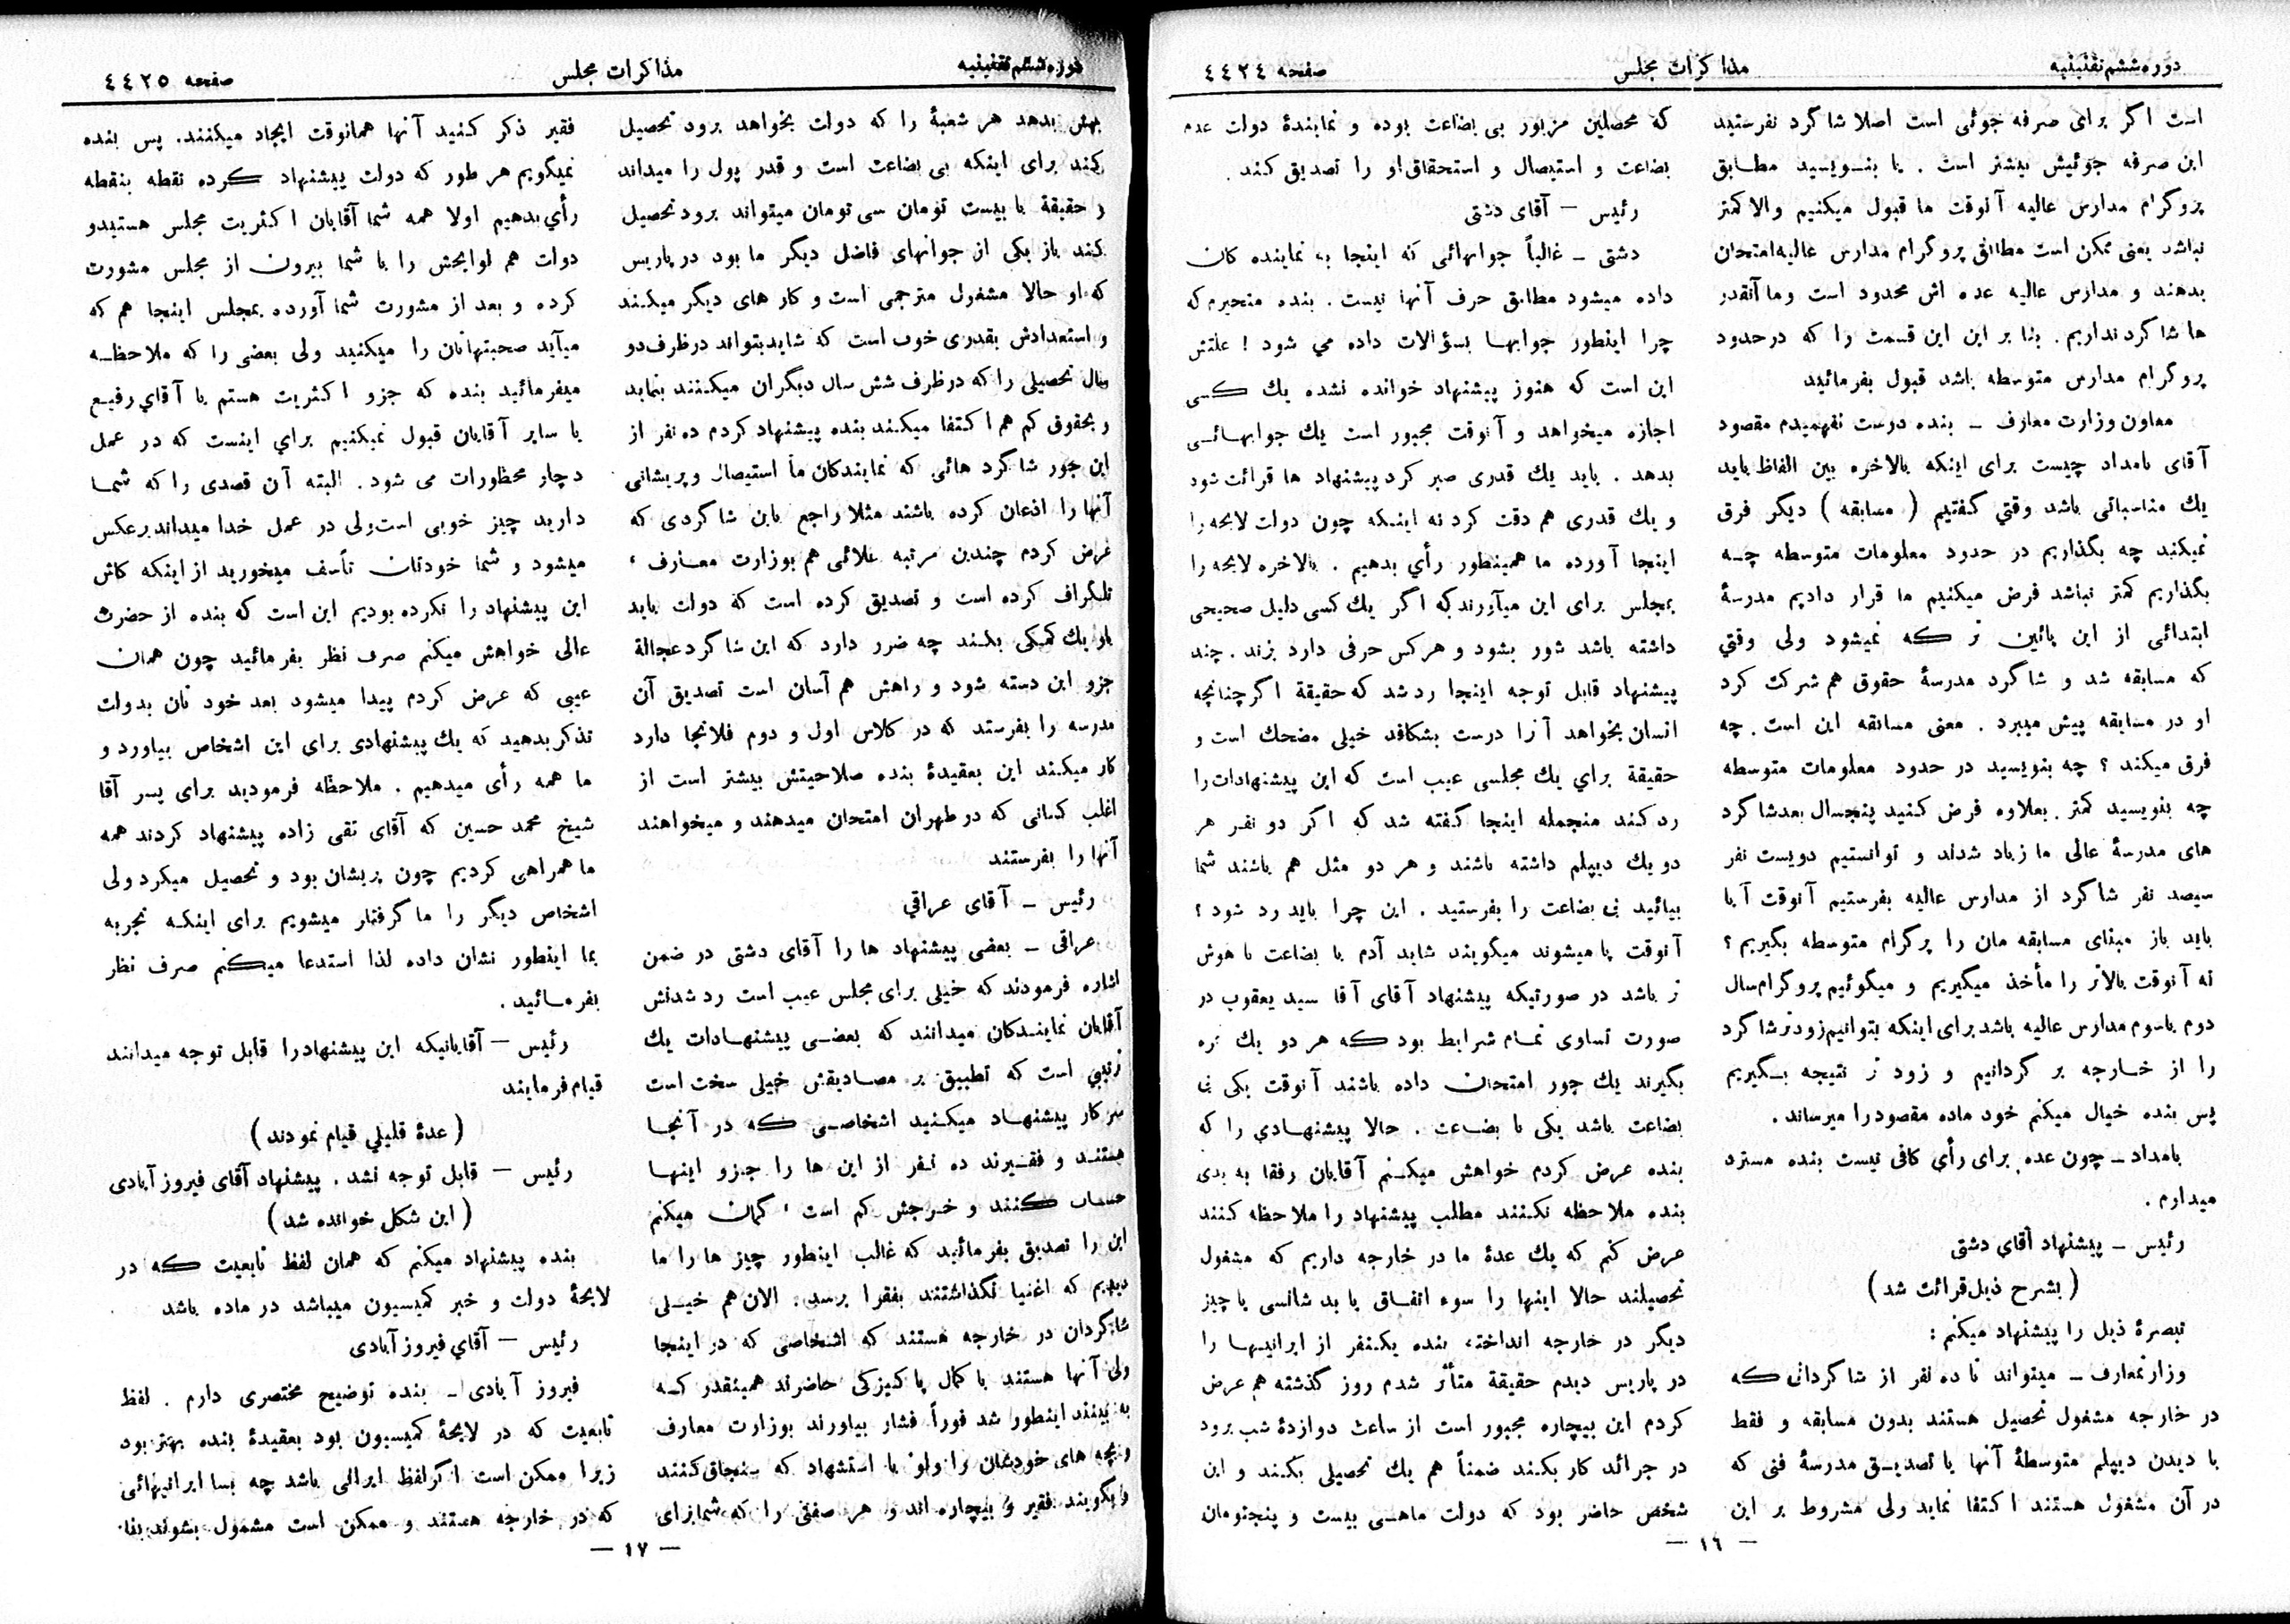 دوره ششم تقنینیه
مذاکرات مجلس
صفحه ٤٤٢٤
است اگر برای صرفه جوئی است اصلا شاگرد نفرستید
این صرفه جوئیش بیشتر است . یا بنویسید مطابق
پروگرام مدارس عالیه آنوقت ما قبول میکنیم والا کمتر
نباشد یعنی ممکن است مطابق پروگرام مدارس عالیه امتحان
بدهند و مدارس عالیه عده اش محدود است و ما آنقدر
ها شاگرد نداریم . بنا بر این این قسمت را که در حدود
پروگرام مدارس متوسطه باشد قبول بفرمائید
معاون وزارت معارف ــ بنده درست نفهمیدم مقصود
آقای بامداد چیست برای اینکه بالاخره بین الفاظ باید
یك مناسباتی باشد وقتي گفتیم ( مسابقه ) دیگر فرق
نمیکند چه بگذاریم در حدود معلومات متوسطه چه
بگذاریم کمتر نباشد فرض میکنیم ما قرار دادیم مدرسهٔ
ابتدائی از این پائین تر که نمیشود ولی وقتي
که مسابقه شد و شاگرد مدرسهٔ حقوق هم شرکت کرد
او در مسابقه پیش میبرد . معنی مسابقه این است . چه
فرق میکند ؟ چه بنویسید در حدود معلومات متوسطه
چه بنویسید کمتر . بعلاوه فرض کنید پنجسال بعد شاگرد
های مدرسهٔ عالی ما زیاد شدند و توانستیم دویست نفر
سیصد نفر شاگرد از مدارس عالیه بفرستیم آنوقت آیا
باید باز مبنای مسابقه مان را پرگرام متوسطه بگیریم ؟
نه آنوقت بالاتر را مأخذ میگیریم و میگوئیم پروگرام سال
دوم یا سوم مدارس عالیه باشد برای اینکه بتوانیم زودتر شاگرد
را از خارجه بر گردانیم و زود تر نتیجه بگیریم
پس بنده خیال میکنم خود ماده مقصود را میرساند .
بامداد ــ چون عده برای رأی کافی نیست بنده مسترد
میدارم .
رئیس ــ پیشنهاد آقاي دشتی
( بشرح ذیل قرائت شد )
تبصرهٔ ذیل را پیشنهاد میکنم :
وزارتمعارف ــ میتواند تا ده نفر از شاگردانی که
در خارجه مشغول تحصیل هستند بدون مسابقه و فقط
با دیدن دیپلم متوسطهٔ آنها یا تصدیق مدرسهٔ فنی که
در آن مشغول هستند اکتفا نماید ولی مشروط بر این
که محصلین مزبور بی بضاعت بوده و نمایندهٔ دولت عدم
بضاعت و استیصال و استحقاق او را تصدیق کند .
رئیس — آقای دشتی
دشتی ــ غالباً جوابهائی که اینجا به نماینده گان
داده میشود مطابق حرف آنها نیست . بنده متحیرم که
چرا اینطور جوابها بسؤالات داده می شود ! علتش
این است که هنوز پیشنهاد خوانده نشده یك کسی
اجازه میخواهد و آنوقت مجبور است یك جوابهائی
بدهد . باید یك قدری صبر کرد پیشنهاد ها قرائت شود
و یك قدری هم دقت کرد نه اینکه چون دولت لایحه را
اینجا آورده ما همینطور رأي بدهیم . بالاخره لایحه را
بمجلس برای این میآورند که اگر یك کسی دلیل صحیحی
داشته باشد شور بشود و هر کس حرفی دارد بزند . چند
پیشنهاد قابل توجه اینجا رد شد که حقیقة اگر چنانچه
انسان بخواهد آنرا درست بشکافد خیلی مضحك است و
حقیقة براي یك مجلسی عیب است که این پیشنهادات را
رد کند منجمله اینجا گفته شد که اگر دو نفر هر
دو یك دیپلم داشته باشند و هر دو مثل هم باشند شما
بیائید بی بضاعت را بفرستید . این چرا باید رد شود ؟
آنوقت پا میشوند میگویند شاید آدم با بضاعت با هوش
تر باشد در صورتیکه پیشنهاد آقای آقا سید یعقوب در
صورت تساوی تمام شرایط بود که هر دو یك نمره
بگیرند یك جور امتحان داده باشند آنوقت یکی بی
بضاعت باشد یکی با بضاعت . حالا پیشنهادي را که
بنده عرض کردم خواهش میکنم آقایان رفقا به بدی
بنده ملاحظه نکنند مطلب پیشنهاد را ملاحظه کنند
عرض کنم که یك عدهٔ ما در خارجه داریم که مشغول
تحصیلند حالا اینها را سوء اتفاق یا بد شانسی یا چیز
دیگر در خارجه انداخته بنده یکنفر از ایرانیها را
در پاریس دیدم حقیقة متأثر شدم روز گذشته هم عرض
کردم این بیچاره مجبور است از ساعت دوازدهٔ شب برود
در جرائد کار بکند ضمناً هم یك تحصیلی بکند و این
شخص حاضر بود که دولت ماهی بیست و پنجتومان
— ١٦ —
دوره ششم تقنینیه
مذاکرات مجلس
صفحه ٤٤٢٥
بهش بدهد هر شعبهٔ را که دولت بخواهد برود تحصیل
کند برای اینکه بی بضاعت است و قدر پول را میداند
و حقیقة با بیست تومان سی تومان میتواند برود تحصیل
کند باز یکی از جوانهای فاضل دیگر ما بود در پاریس
که او حالا مشغول مترجمی است و کار های دیگر میکند
و استعدادش بقدری خوب است که شاید بتواند در ظرف دو
سال تحصیلی را که در ظرف شش سال دیگران میکنند بنماید
و بحقوق کم هم اکتفا میکند بنده پیشنهاد کردم ده نفر از
این جور شاگرد هائی که نمایندگان ما استیصال و پریشانی
آنها را اذعان کرده باشند مثلا راجع باین شاگردی که
عرض کردم چندین مرتبه علائی هم بوزارت معارف ،
تلگراف کرده است و تصدیق کرده است که دولت باید
باو یك کمکی بکند چه ضرر دارد که این شاگرد عجالة
جزو این دسته شود و راهش هم آسان است تصدیق آن
مدرسه را بفرستد که در کلاس اول و دوم فلانجا دارد
کار میکند این بعقیدهٔ بنده صلاحیتش بیشتر است از
اغلب کسانی که در طهران امتحان میدهند و میخواهند
آنها را بفرستند
رئیس ــ آقای عراقي
عراقی ــ بعضی پیشنهاد ها را آقای دشتی در ضمن
اشاره فرمودند که خیلی برای مجلس عیب است رد شدنش
آقایان نمایندگان میدانند که بعضی پیشنهادات یك
ترتیبي است که تطبیق بر مصادیقش خیلی سخت است
سرکار پیشنهاد میکنید اشخاصی که در آنجا
هستند و فقیرند ده نفر از این ها را جزو اینها
حساب کنند و خرجش کم است ، گمان میکنم
این را تصدیق بفرمائید که غالب اینطور چیز ها را ما
دیدیم که اغنیا نگذاشتند بفقرا برسد . الان هم خیلی
شاگردان در خارجه هستند که اشخاصی که در اینجا
ولی آنها هستند با کمال پاکیزکی حاضرند همینقدر که
به بینند اینطور شد فوراً فشار بیاورند بوزارت معارف
و بچه های خودشان را ولو با استشهاد که سنجاق کنند
و بگویند فقیر و بیچاره اند و هر صفتی را که شما برای
فقیر ذکر کنید آنها همانوقت ایجاد میکنند . پس بنده
نمیگویم هر طور که دولت پیشنهاد کرده نقطه بنقطه
رأي بدهیم اولا همه شما آقایان اکثریت مجلس هستیدو
دولت هم لوایحش را با شما بیرون از مجلس مشورت
کرده و بعد از مشورت شما آورده بمجلس اینجا هم که
میآید صحبتهاتان را میکنید ولی بعضی را که ملاحظه
میفرمائید بنده که جزو اکثریت هستم یا آقاي رفیع
یا سایر آقایان قبول نمیکنیم براي اینست که در عمل
دچار محظورات می شود . البته آن قصدی را که شما
دارید چیز خوبی است ولی در عمل خدا میداند برعکس
میشود و شما خودتان تأسف میخورید از اینکه کاش
این پیشنهاد را نکرده بودیم این است که بنده از حضرت
عالی خواهش میکنم صرف نظر بفرمائید چون همان
عیبی که عرض کردم پیدا میشود بعد خود تان بدولت
تذکر بدهید که یك پیشنهادی برای این اشخاص بیاورد و
ما همه رأی میدهیم . ملاحظه فرمودید برای پسر آقا
شیخ محمد حسین که آقای تقی زاده پیشنهاد کردند همه
ما همراهی کردیم چون پریشان بود و تحصیل میکرد ولی
اشخاص دیگر را ما گرفتار میشویم برای اینکه تجربه
بما اینطور نشان داده لذا استدعا میکنم صرف نظر
بفرمائید .
رئیس — آقایانیکه این پیشنهاد را قابل توجه میدانند
قیام فرمایند
( عدهٔ قلیلي قیام نمودند )
رئیس — قابل توجه نشد . پیشنهاد آقای فیروز آبادی
( این شکل خوانده شد )
بنده پیشنهاد میکنم که همان لفظ تابعیت که در
لایحهٔ دولت و خبر کمیسیون میباشد در ماده باشد
رئیس — آقاي فیروز آبادی
فیروز آبادی ــ بنده توضیح مختصری دارم . لفظ
تابعیت که در لایحهٔ کمیسیون بود بعقیدهٔ بنده بهتر بود
زیرا ممکن است اگر لفظ ایرانی باشد چه بسا ایرانیهائی
که در خارجه هستند و ممکن است مشمول بشوند
— ١٧ —